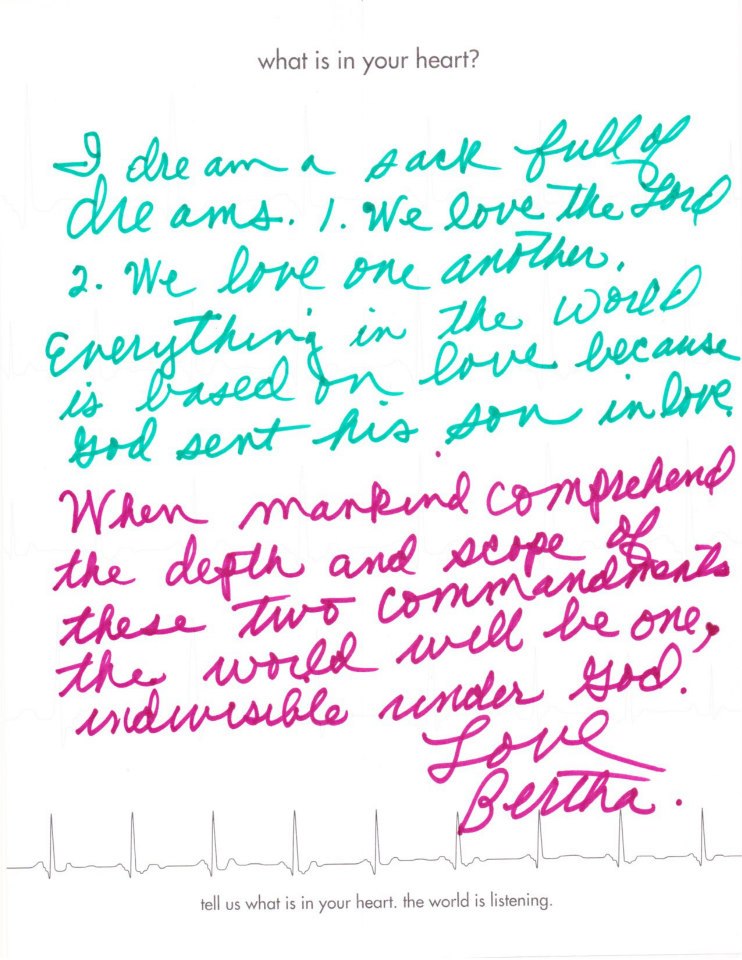 what is in your heart?
I dream a sack full of
dreams. 1. We love the Lord
2. We love one another.
Everything in the world
is based on love because
God sent his son in love.
When mankind comprehend
the depth and scope of
these two commandments
the world will be one,
indivisible under God.
Love
Bertha.
tell us what is in your heart. the world is listening.